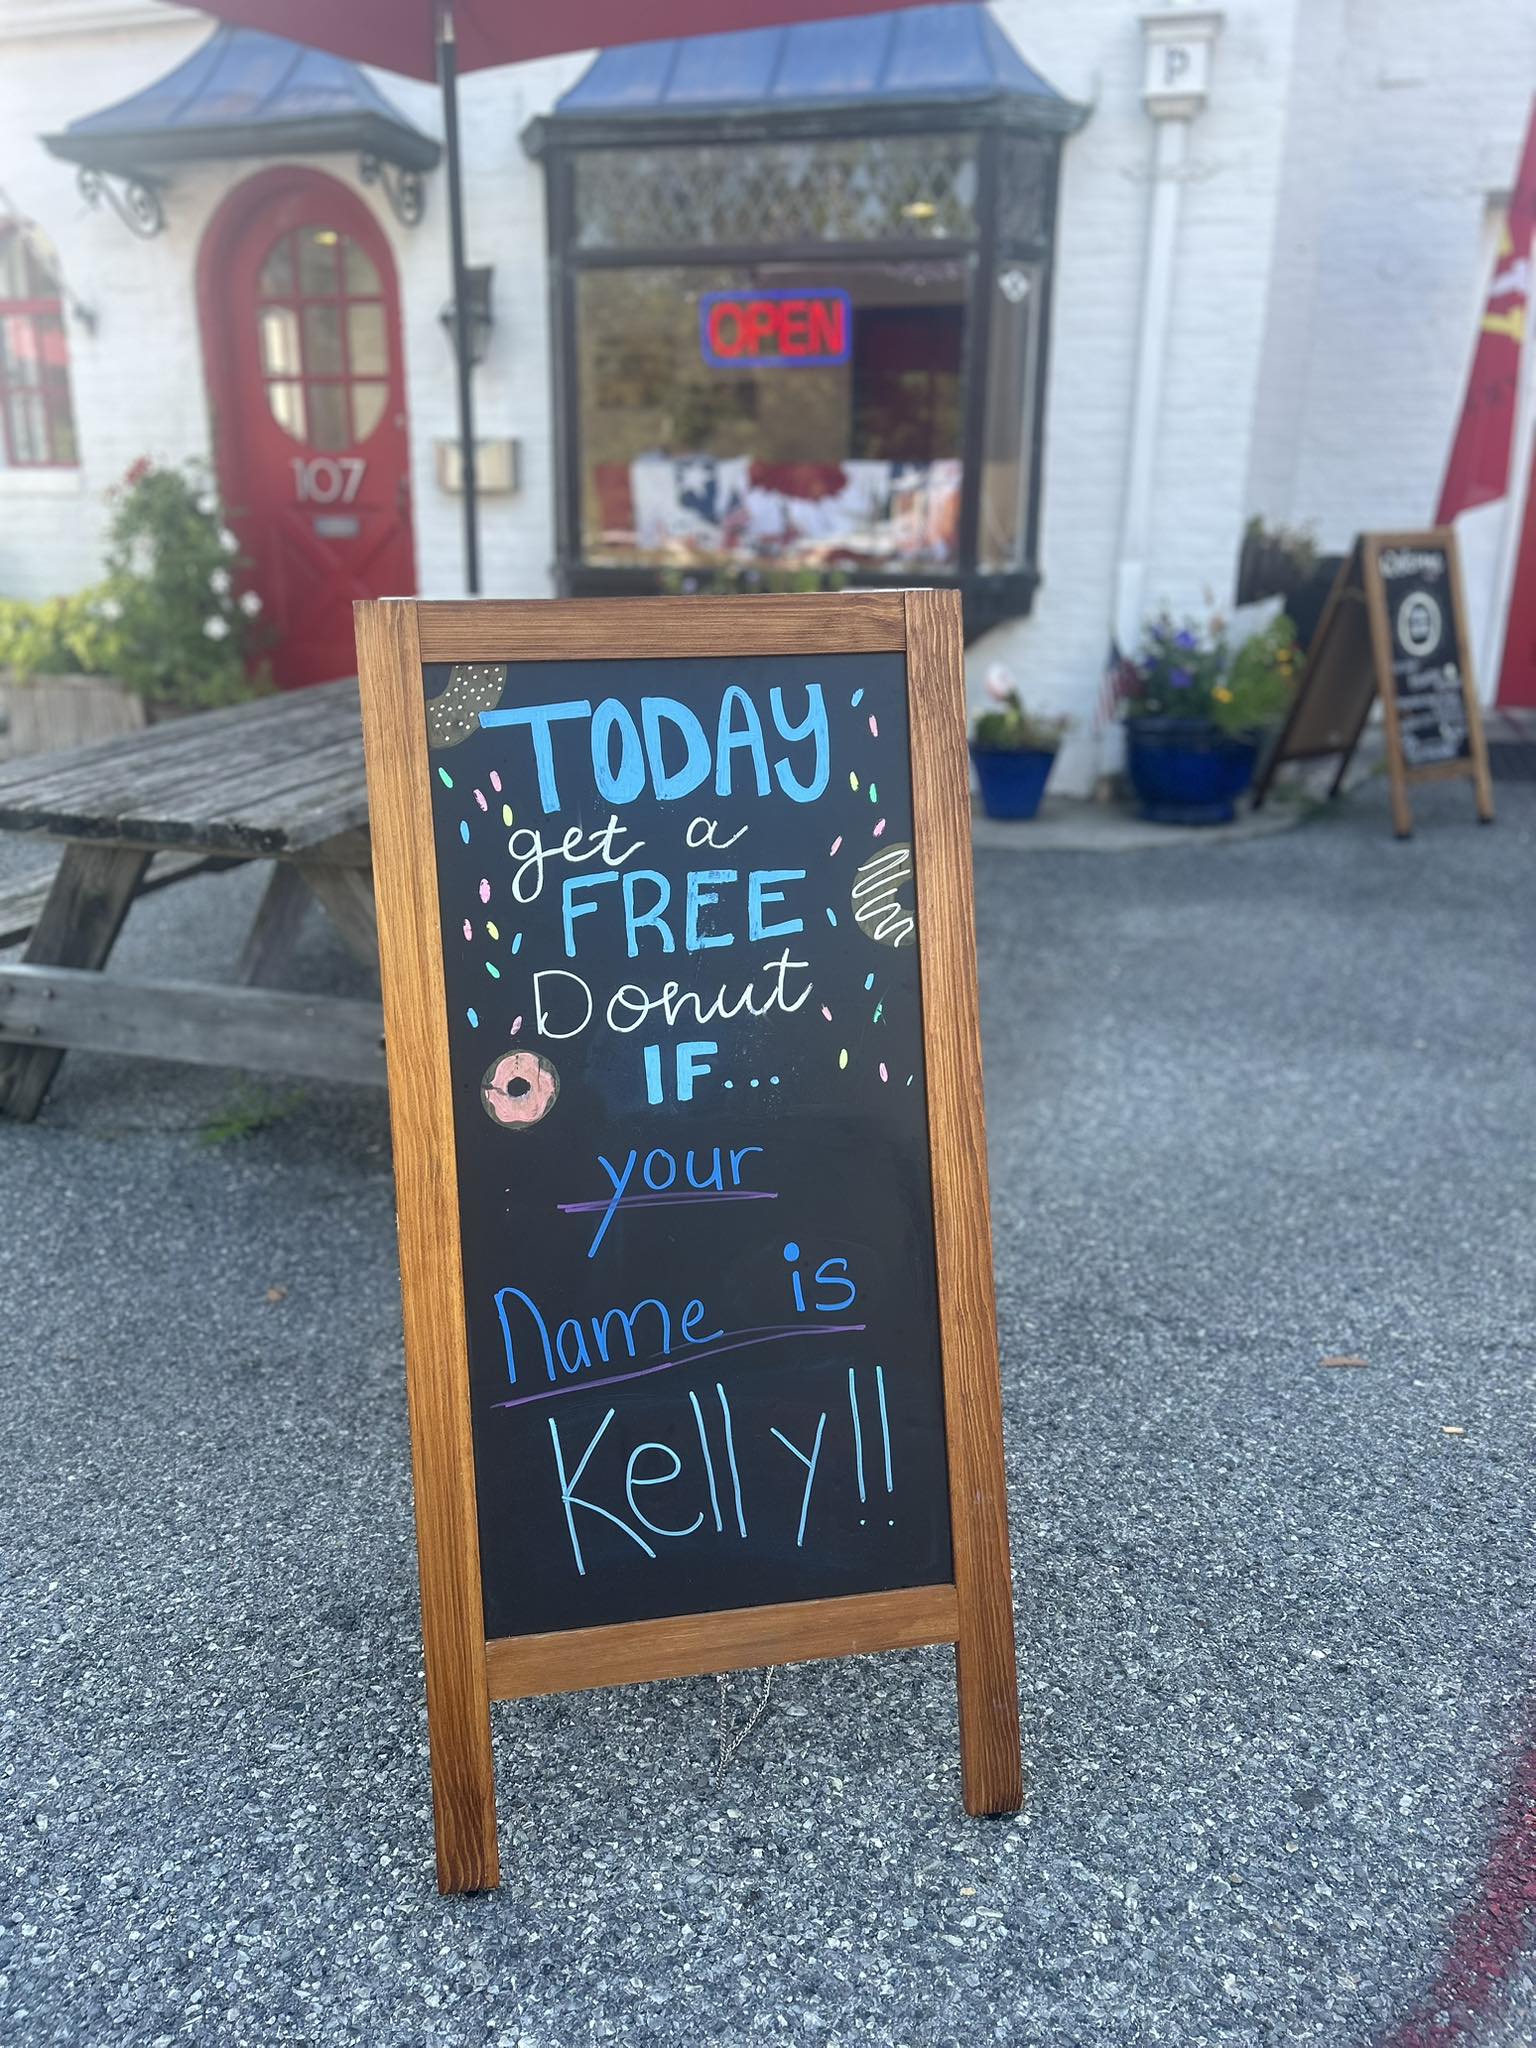 P
OPEN
107
TODAY
get a
FREE
Donut
IF...
your
Name is
Kelly!!